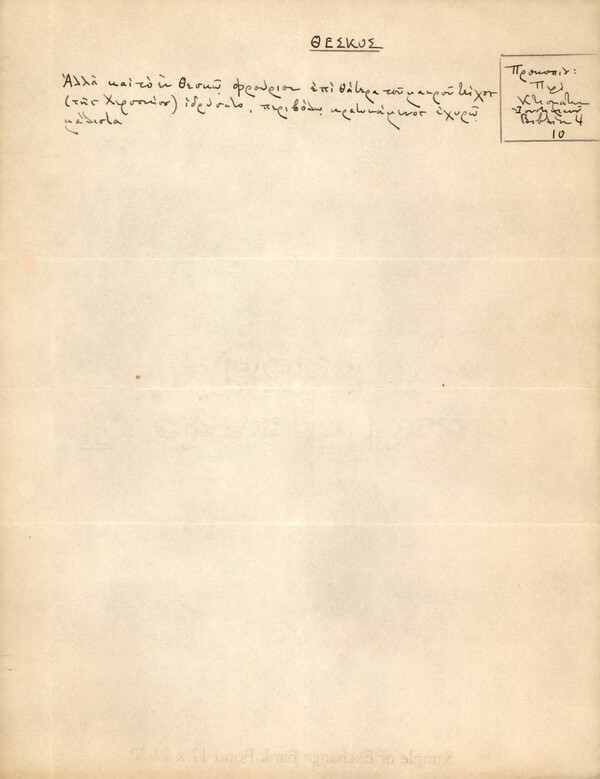 ΘΕΣΚΟΣ
Ἀλλὰ καὶ τὸ ἐν Θεσκῷ φρούριον ἐπὶ θάτερα τοῦ μακροῦ τείχους
(τῆς Χερσονήσου) ἱδρύσατο, περιβόλῳ κρατυνάμενος ἐχυρῷ
μάλιστα
Προκοπίου:
Περὶ
Κτισμάτων
Βιβλίον 4
10
Sample of Exchange Bank Bond 17 x 22-20